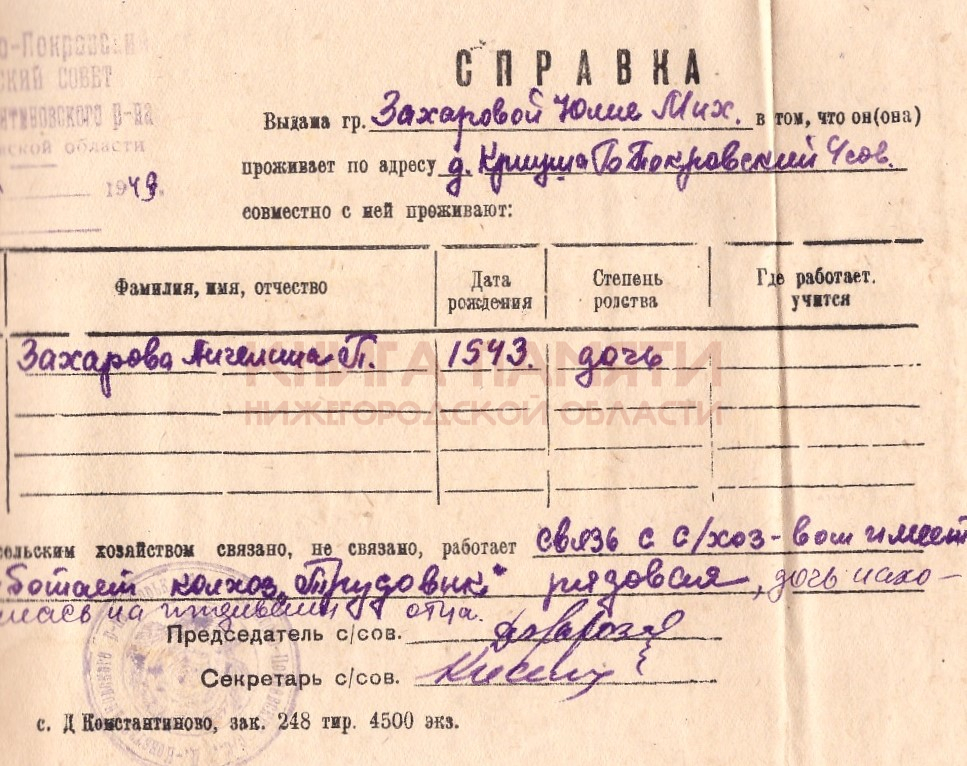 о-Покровский
ский СОВЕТ
нтиновского р-на
вской области
1949.
СПРАВКА
Выдана гр. Захаровой Юлие Мих. в том, что он(она)
проживает по адресу д. Криуша Покровский с/сов.
совместно с ней проживают:
Фамилия, имя, отчество
Дата рождения
Степень родства
Где работает. учится
Захарова Ангелина П. 1943. дочь
КНИГА ПАМЯТИ
НИЖЕГОРОДСКОЙ ОБЛАСТИ
ельским хозяйством связано, не связано, работает связь с с/хоз-вом имеет
ботает колхоз „Трудовик" рядовая, дочь нахо-
лась на иждивении отца.
Председатель с/сов.
Секретарь с/сов.
с. Д Константиново, зак. 248 тир. 4500 экз.